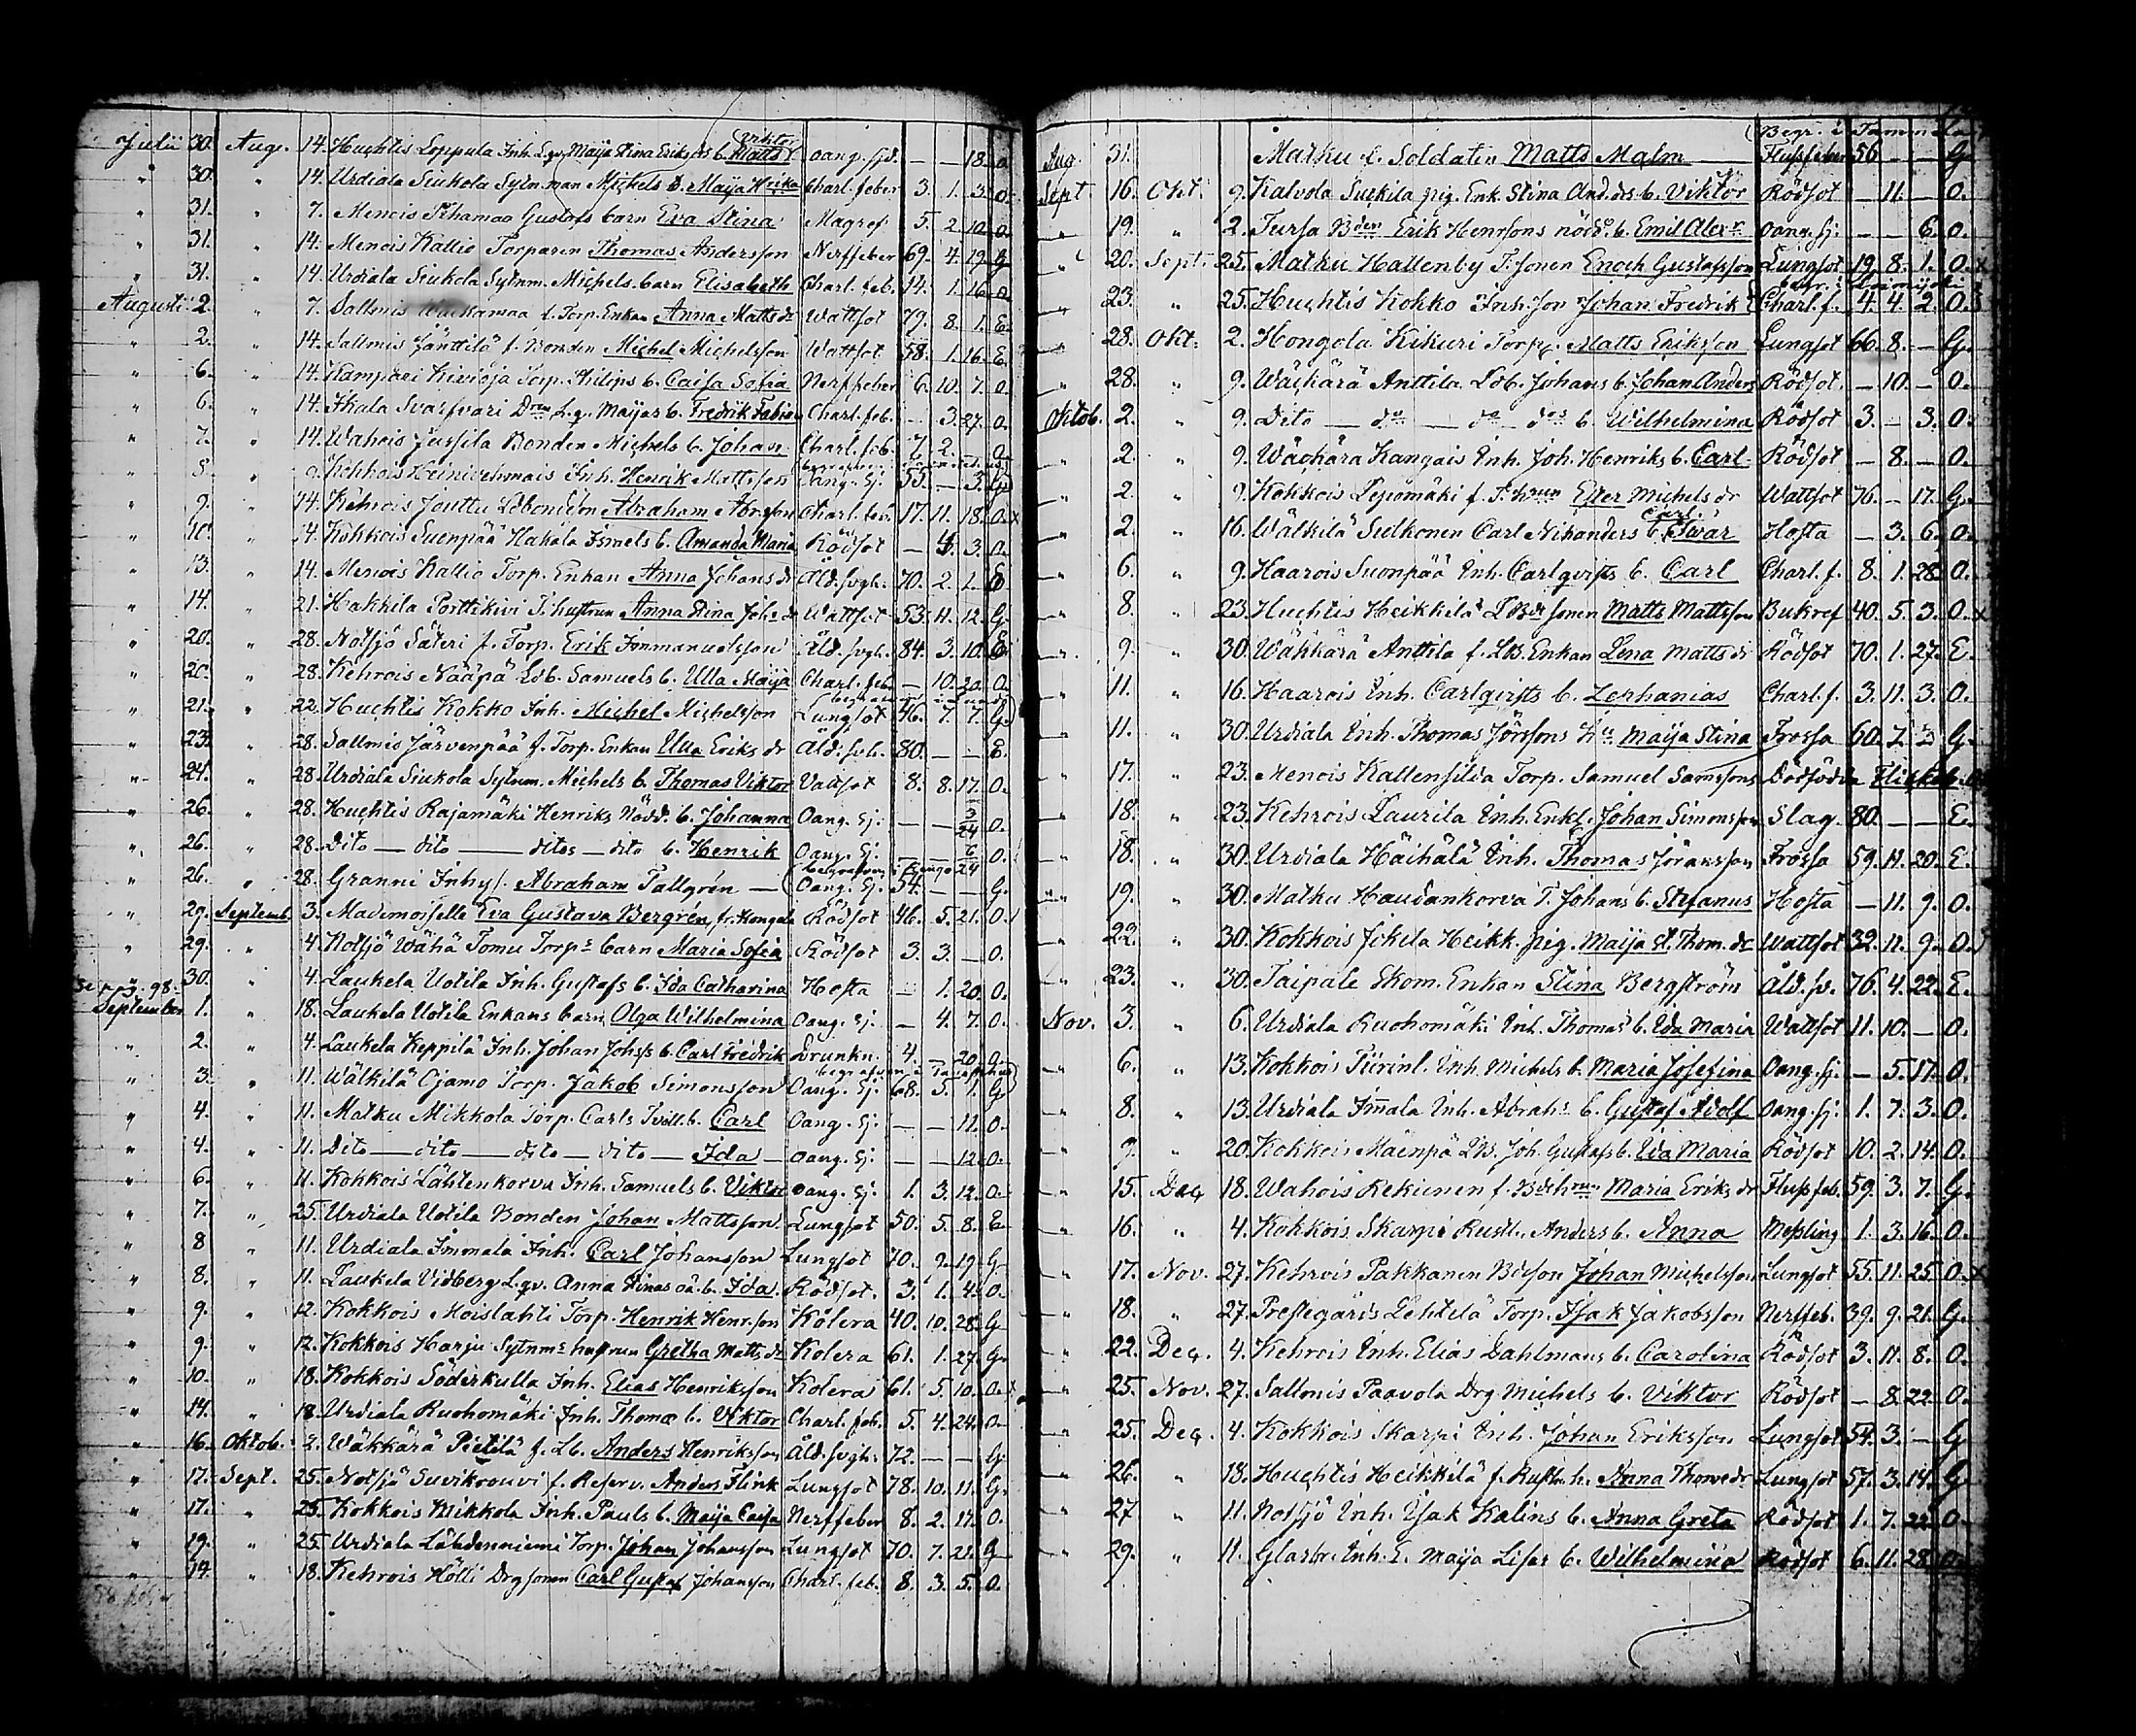 Viktor
Julii 30. Aug. 14. Huchtis Loppula Inh. Lqv. Maija Stina Eriks ds b. Matts oang. sjd. — — 18. o.
" 30. " 14. Urdiala Siukola Sytn.man Michels b. Maija Heika Charl. feber 3. 1. 3. o.
" 31. " 7. Menois Pihamaa Gustafs barn Eva Stina Magref 5. 2. 10. o.
" 31. " 14. Menois Kallio Torparen Thomas Andersson Nerffeber 69. 4. 19. G
" 31. " 14. Urdiala Siukola Sytnm. Michels barn Elisabeth Charl. feb. 14. 1. 16. o.
Augusti 2. " 7. Sallmis f. Torp. Enkan Anna Matts dr Wattsot 79. 8. 1. E.
" 2. " 14. Sallmis Jänttilä f. Bonden Michel Michelsson Wattsot 58. 1. 16. E
" 6. " 14. Kamppari Kivioja Torp. Philips b. Caisa Sofia Nerffeber 6. 10. 7. o.
" 6. " 14. Ikala Svarfvari Drm L.q. Maijas b. Fredrik Fabian Charl. feb. — 3. 27. o.
" 7. " 14. Wahois Jussila Bonden Michels b. Johan Charl. feb. 7. 2. — o.
" 8. " Kokkois Heinieehmais Inh. Henrik Mattsson Oang. Sj. 55. — 3. G
" 9. " 14. Kehrois Jouttu Lobondson Abraham Abr.sson Charl. feb. 17. 11. 18. o. x
" 10. " 14. Kokkois Suenpää Hakala Ismels b. Amanda Maria Rödsot — 4. 3. o.
" 13. " 14. Menois Kallio Torp. Enkan Anna Johans dr Åld. svgh. 70. 2. 1. E
" 14. " 21. Hakkila Porttikivi T. hustrun Anna Stina Joh. dr Wattsot 53. 11. 12. G.
" 20. " 28. Notsjö Säteri f. Torp. Erik Immanuelsson Åld. svgh. 84. 3. 10. E
" 20. " 28. Kehrois Nääpä Lob. Samuels b. Ulla Maija Charl. feb. — 10. 20. o.
" 21. " 22. Huchtis Kokko Inh. Michel Michelsson Lungsot 46. 7. 7. G.
" 23. " 28. Sallmis Järvenpää f. Torp. Enkan Ulla Eriks dr Åld. svh. 80. — — E.
" 24. " 28. Urdiala Siukola Sytnm. Michels b. Thomas Viktor Vattsot 8. 8. 17. o.
" 26. " 28. Huchtis Rajamäki Henriks Nödd. b. Johanna Oang. Sj. — — 5/24 o.
" 26. " 28. Dito — dito — ditos — dito b. Henrik Oang. Sj. — — 6/24 o.
" 26. " 28. Granni Inhys. Abraham Tallgrén — Oang. Sj. 54. — — G.
" 29. Septemb. 3. Mademoiselle Eva Gustava Bergrén, fr. Hongola Rödsot 46. 5. 21. o.
" 29. " 4. Notsjö Wähä Tomu Torps barn Maria Sofia Rödsot 3. 3. — o.
" 30. " 4. Laukela Uotila Inh. Gustafs b. Ida Catharina Hosta — 1. 20. o.
September 1. " 18. Laukela Uotila Enkans barn Olga Wilhelmina oang. Sj. — 4. 7. o.
" 2. " 4. Laukela Keppilä Inh. Johan Johss b. Carl Fredrik Drunkn. 4. — 20. o.
" 3. " 11. Wälkilä Ojamo Torp. Jakob Simonsson Oang. Sj. 68. 5. 1. G
" 4. " 11. Matku Mikkola Torp. Carls Tvill. b. Carl Oang. Sj. — — 11. o.
" 4. " 11. Dito — dito — dito — dito — Ida — oang. Sj. — — 12. o.
" 6. " 11. Kokkois Lähtenkorva Inh. Samuels b. Viktor oang. Sj. 1. 3. 12. o.
" 7. " 25. Urdiala Uotila Bonden Johan Mattsson Lungsot 50. 5. 8. E
" 8 " 11. Urdiala Immala Inh. Carl Johansson Lungsot 70. 9. 19. G
" 8. " 11. Laukela Vidberg Lqv. Anna Stinas oä. b. Ida. Rödsot. 3. 1. 4. o.
" 9. " 12. Kokkois Moislahti Torp. Henrik Henr.son Kolera 40. 10. 28. G
" 9. " 12. Kokkois Harju Sytnms hustrun Gretha Matts dr Kolera 61. 1. 27. G.
" 10. " 18. Kokkois Söderkulla Inh. Elias Henriksson Kolera 61. 5. 10. o.
" 14. " 18. Urdiala Ruohomäki Inh. Thomæ b. Viktor Charl. feb. 5. 4. 24. o.
" 16. Oktob. 2. Wäkkärä Pietilä f. Lb. Anders Henriksson Åld. svgh. 72. — — G
" 17. Sept. 25. Notsjö Suvikrouvi f. Reserv. Anders Flink Lungsot 78. 10. 11. G.
" 17. " 25. Kokkois Mikkola Inh. Pauls b. Maija Caisa Nerffeber 8. 2. 17. o.
" 19. " 25. Urdiala Lähdenniemi Torp. Johan Johansson Lungsot 70. 7. 21. G
" 14. " 18. Kehrois Hölli Drg sonen Carl Gustaf Johansson Charl. feb. 8. 3. 5. o.
Begr. i Tammela
Aug. 31. Matku f. Soldaten Matts Malm Flussfeber 56 — — G.
Sept. 16. Okt. 9. Kalvola Suckila pig. Enk. Stina And. ds b. Viktor Rödsot — 11. — O.
" 19. " 2. Tursa Bden Erik Henrssons nödd. b. Emil Alexr oang. sj. — — 6. O.
" 20. Sept. 25. Matku Hallenby T. sonen Enoch Gustafsson Lungsot 19. 8. 1. O. x
" 23. " 25. Huchtis Kokko Inh. son Johan Fredrik Charl. f. 4. 4. 2. O.
" 28. Okt. 2. Hongola Kikuri Torp. Matts Eriksson Lungsot 66. 8. — G.
" 28. " 9. Wäckärä Anttila Lob. Johans b. Johan Anders Rödsot. — 10. — O.
Oktob. 2. " 9. Dito — do — do dos b. Wilhelmina Rödsot 3. — 3. O.
" 2. " 9. Wächärä Kangais Inh. Joh. Henriks b. Carl Rödsot — 8. — O.
" 2. " 9. Kokkois Lepiomäki f. T. hrun Ester Michels dr Wattsot 76. — 17. G.
Carl
" 2. " 16. Wälkilä Sielkonen Carl Nikanders b. Edvar Hosta — 3. 6. O.
" 6. " 9. Haarois Suonpää Inh. Carlqvists b. Carl Charl. f. 8. 1. 28. O.
" 8. " 23. Huchtis Heikkilä LBds sonen Matts Mattsson Bukref 40. 5. 3. O. x
" 9. " 30. Wäkkärä Anttila f. LB. Enkan Lena Matts dr Rödsot 70. 1. 27. E.
" 11. " 16. Haarois Inh. Carlqvists b. Zephanias Charl. f. 3. 11. 3. O.
" 11. " 30. Urdiala Inh. Thomas Jörssons hu Maija Stina Frossa 60. 7. 3 G.
" 17. " 23. Menois Kallensilda Torp. Samuel Samssons Dödfödda Flickeb.
" 18. " 23. Kehrois Laurila Inh. Enkl. Johan Simonsson Slag. 80. — — E.
" 18. " 30. Urdiala Häihälä Inh. Thomas Jöransson Frossa 59. 11. 20. E.
" 19. " 30. Matku Haudankorva T. Johans b. Stefanus Hosta — 11. 9. O.
" 22. " 30. Kokkois Jokila Heikk. pig. Maija St. Thom. dr Wattsot 32. 11. 9. O.
" 23. " 30. Taipale Skom. Enkan Stina Bergström Åld. sv. 76. 4. 22. E.
Nov. 3. " 6. Urdiala Ruohomäki Inh. Thomas b. Ida Maria Wattsot 11. 10. — O.
" 6. " 13. Kokkois Tiirinl. Inh. Michels b. Maria Josefina Oang. sj. — 5. 17. O.
" 8. " 13. Urdiala Im̅ala Inh. Abrahs b. Gustaf Adolf oang. sj. 1. 7. 3. O.
" 9. " 20. Kokkois Mäenpä LB. Joh. Gustafs b. Ida Maria Rödsot 10. 2. 14. O.
" 15. Dec. 18. Wahois Kekiinen f. Bdehrun Maria Eriks dr Flussfeb. 59. 3. 7. G.
" 16. " 4. Kokkois Skarpi Rustl. Anders b. Anna Messling 1. 3. 16. O.
" 17. Nov. 27. Kehrois Pakkanen Bdson Johan Michelsson Lungsot 55. 11. 25. O. x
" 18. " 27. Prestegårds Lehtilä Torp. Isak Jakobsson Nerffeb. 39. 9. 21. G.
" 22. Dec. 4. Kehrois Inh. Elias Dahlmans b. Carolina Rödsot 3. 11. 8. O.
" 25. Nov. 27. Sallmis Paavola Drg Michels b. Viktor Rödsot — 8. 22. O.
" 25. Dec. 4. Kokkois Skarpi Inh. Johan Eriksson Lungsot 54. 3. — G
" 26. " 18. Huchtis Heikkilä f. Rustl. h. Anna Thomædr Lungsot 57. 3. 14. G
" 27 " 11. Notsjö Inh. Isak Kalins b. Anna Greta Rödsot 1. 7. 22. O.
" 29. " 11. Glasbr. Inh. E. Maija Lisas b. Wilhelmina Rödsot 6. 11. 28. O.